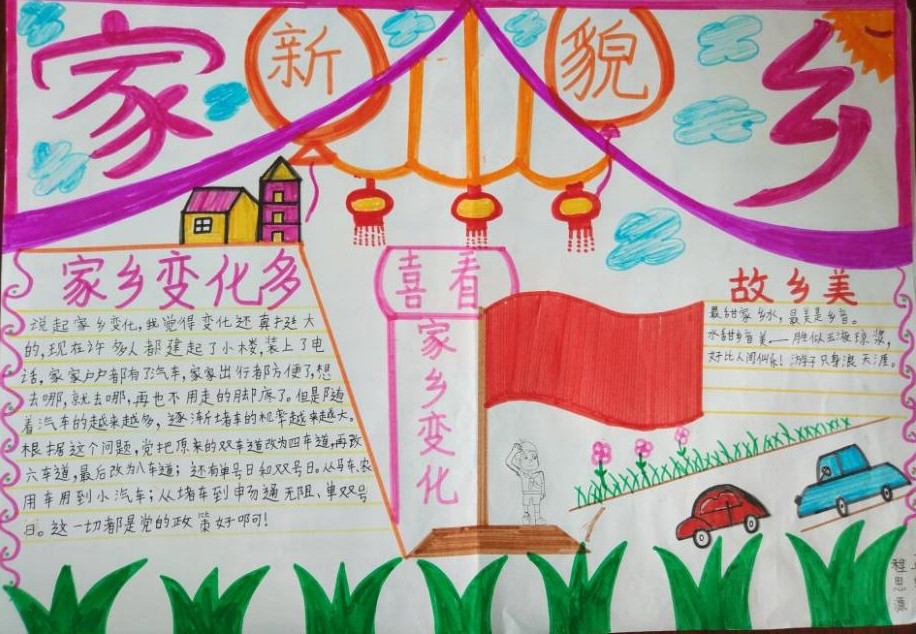 家 新 貌 乡
家乡变化多
说起家乡变化,我觉得变化还真挺大
的,现在许多人都建起了小楼,装上了电
话,家家户户都有了汽车,家家出行都方便了,想
去哪,就去哪,再也不用走的脚疼了。但是随
着汽车的越来越多,逐渐堵车的机率越来越大。
根据这个问题,党把原来的双车道改为四车道,再改
六车道,最后改为八车道;还有单号日和双号日。从马车、农
用车用到小汽车;从堵车到申畅通无阻、单双号
日。这一切都是党的政策好啊!
喜看
家乡变化
故乡美
最甜家乡水,最美是乡音。
水甜乡音美——胜似玉液琼浆,
好比人间仙乐!游子只身浪天涯。
程思源